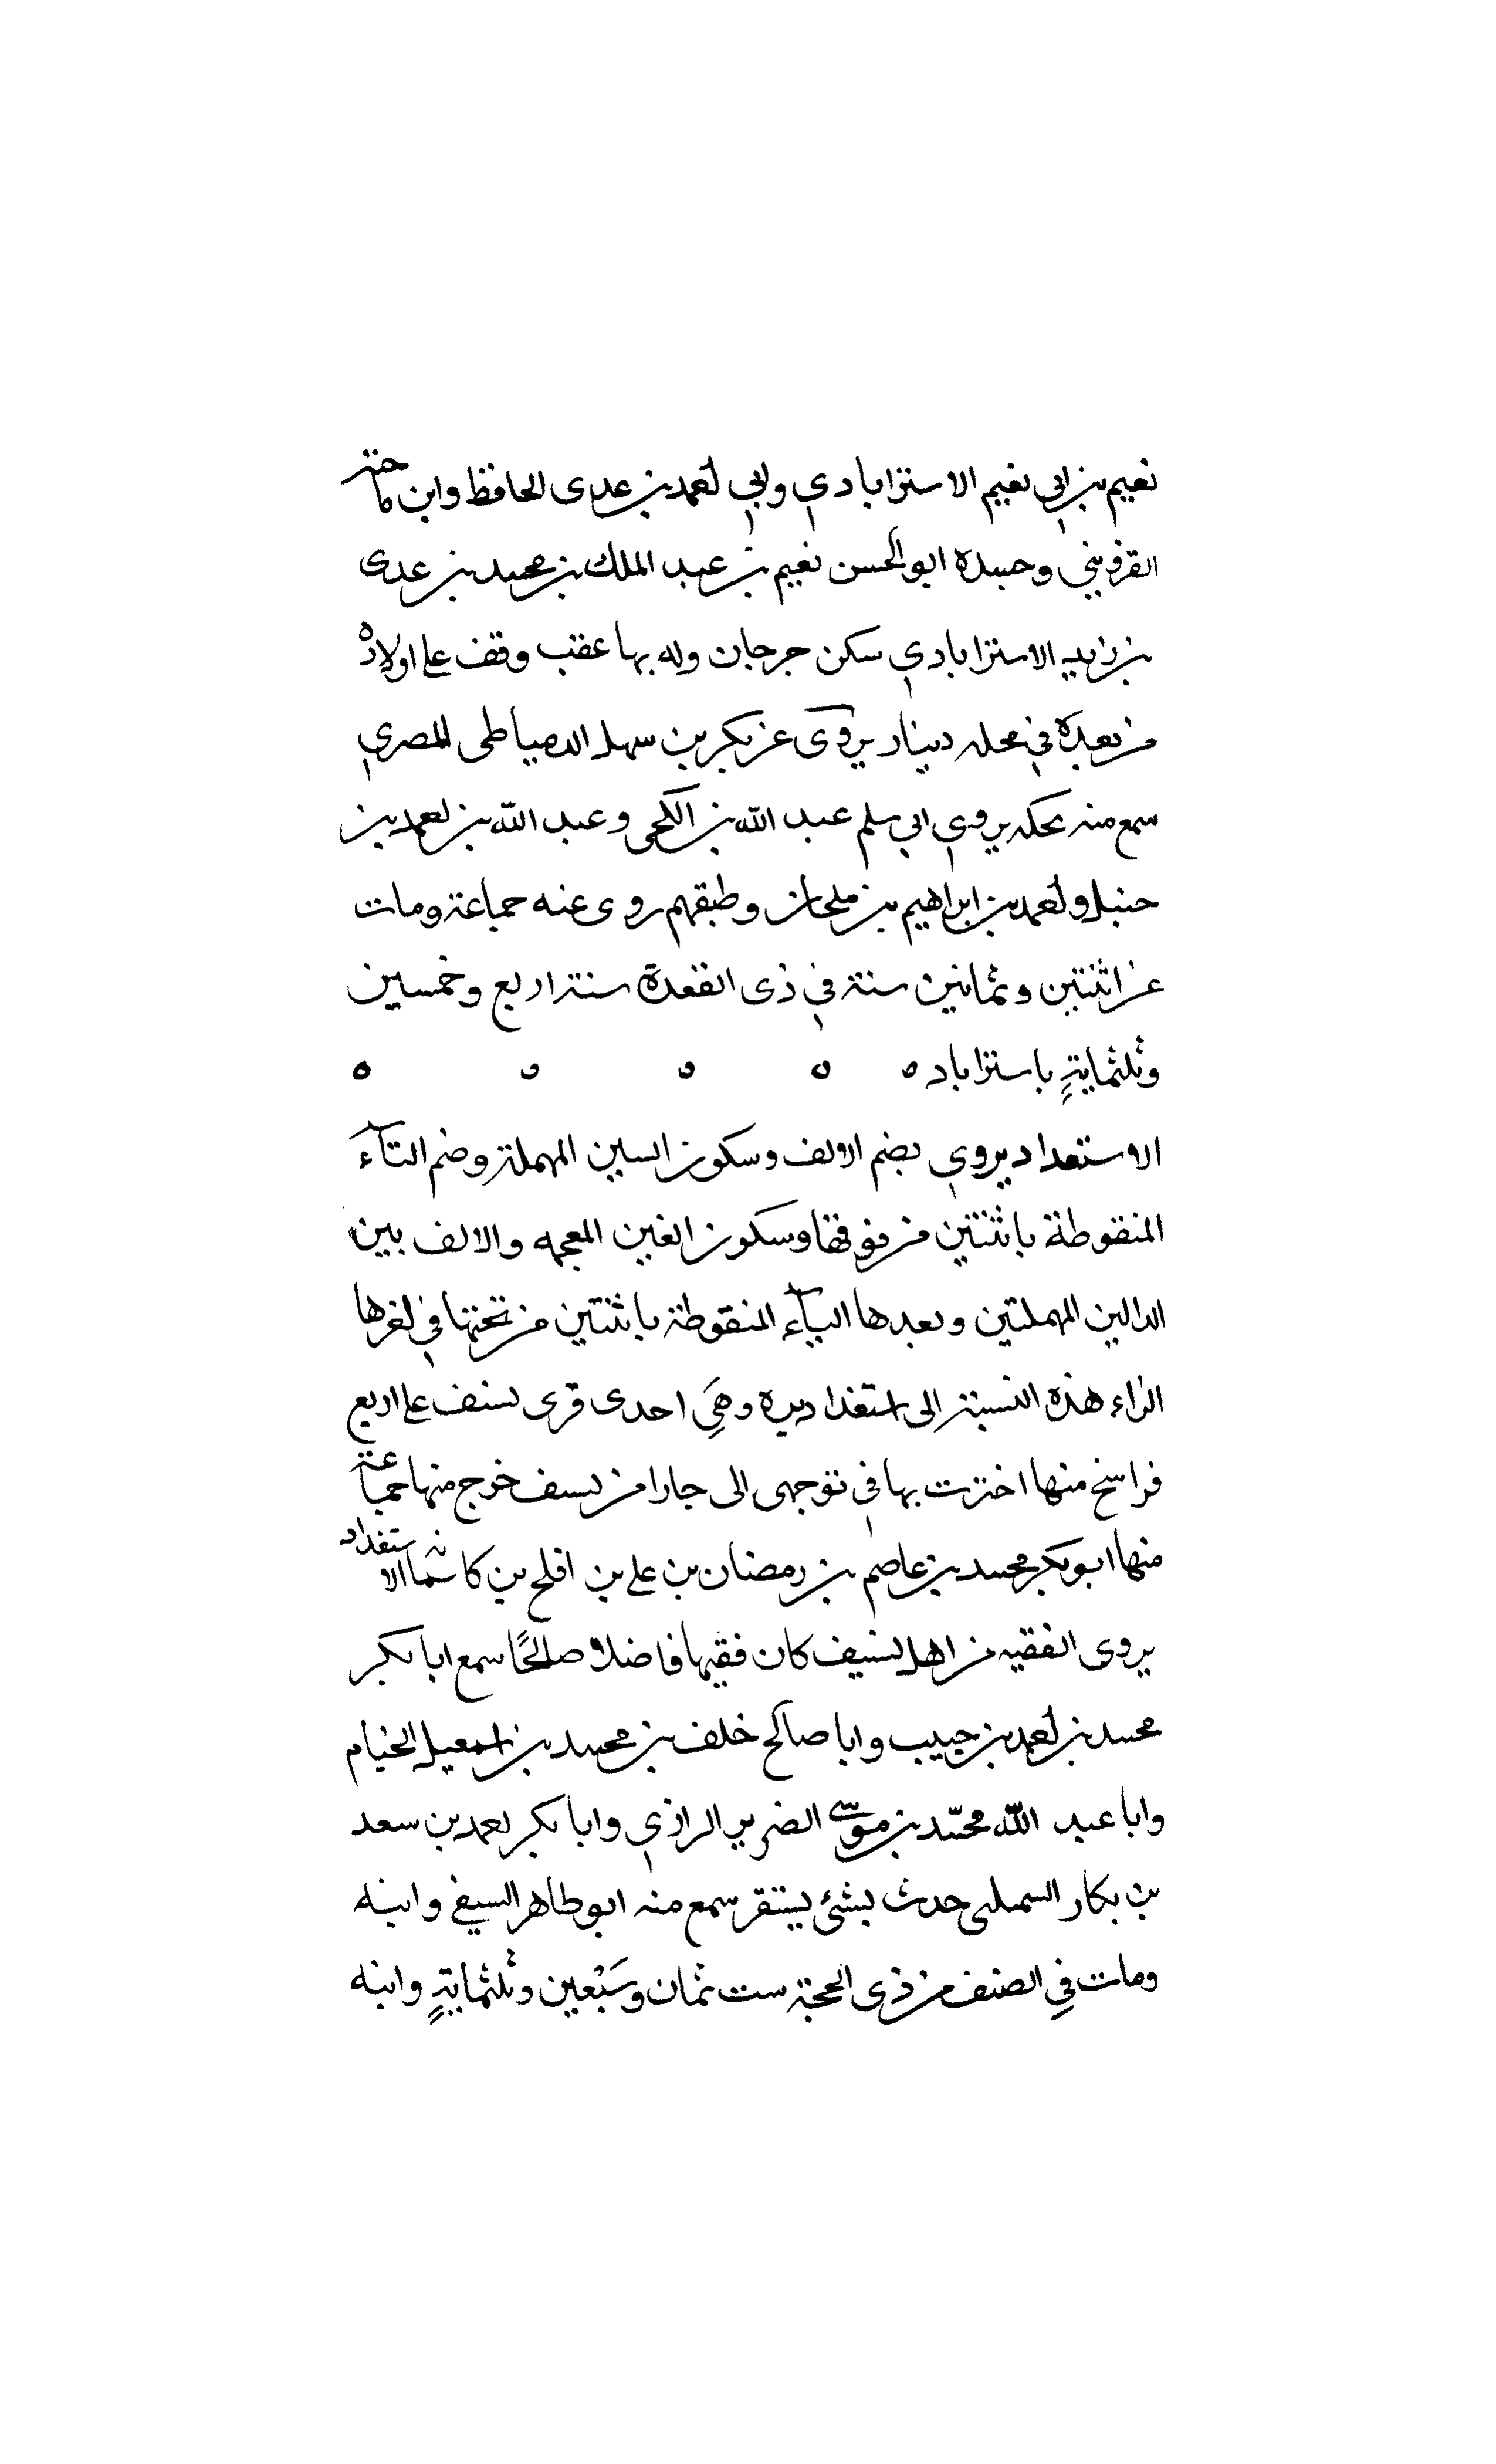 نعيم بن ابي نعيم الاستراباذي وابي احمد بن عدى الحافظ وابن ماجة
القزويني وحفيده ابو الحسن نعيم بن عبد الملك بن محمد بن عدى
بن زيد الاستراباذي سكن جرجان وله بها عقب وقف على اولاده
من بعده في محله دينار يروى عن بكر بن سهل الدمياطى المصري
سمع منه بمكة يروي ابي مسلم عبد الله بن الكجى وعبد الله بن احمد بن
حنبل واحمد بن ابراهيم بن ملحان وطبقهم روى عنه جماعة ومات
عن اثنتين وثمانين سنة في ذى القعدة سنة اربع وخمسين
وثلثماية باستراباد ه ه ه ه ه
الاستغداديروي بضم الالف وسكون السين المهملة وضم التاء
المنقوطة باثنتين من فوقها وسكون الغين المعجمه والالف بين
الدالين المهملتين وبعدها الياء المنقوطة باثنتين من تحتها في اخرها
الراء هذه النسبة الى استغداديره وهي احدى قرى نسف على اربع
فراسخ منها اجتزت بها في توجهى الى جارا من نسف خرج منها جماعة
منها ابو بكر محمد بن عاصم بن رمضان بن على بن افلح بن الاستغداد
يروى الفقيه من اهل نسف كان فقيها فاضلا صالحًا سمع ابا بكر
محمد بن احمد بن حبيب وابا صالح خلف بن محمد بن اسمعيل الخيام
وابا عبد الله محمّد بن موسى الضرير الرازي وابا بكر احمد بن سعد
بن بكار حدث بشئ سمع منه ابو طاهر وابنه
ومات في الصنف من ذى الحجة ست ثمان وسَبْعين وثلثماية وابنه